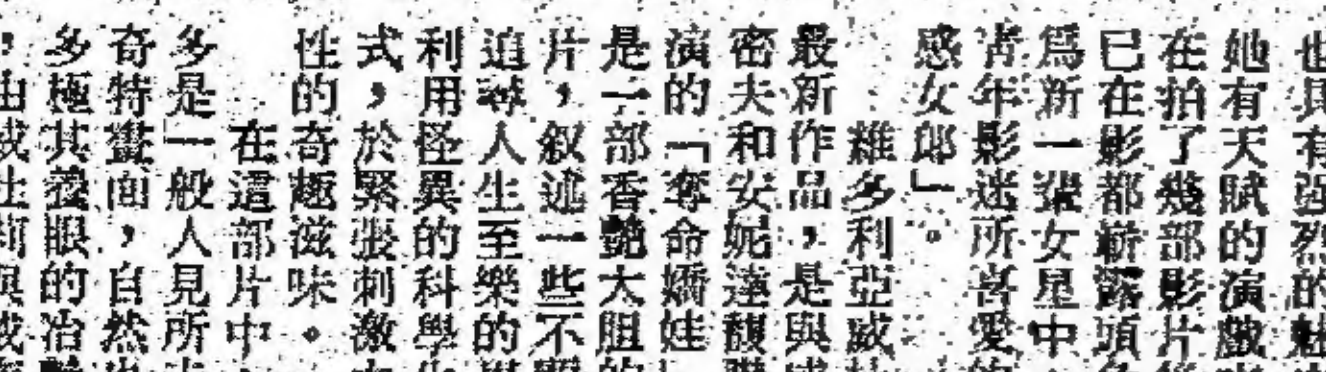 也具有强烈的魅
她有天賦的演戲
在拍了幾部影片
已在影都嶄露頭
爲新一輩女星中
青年影迷所喜愛
感女郎」。
維多利亞威
最新作品,是與
密夫和安妮達馥
演的「奪命嬌娃
是一部香艷大胆
片,叙述一些不
追尋人生至樂的
利用怪異的科學
式,於緊張刺激
性的奇趣滋味。
在這部片中
多是「一般人見所
奇特畫面,自然
多極其養眼的冶